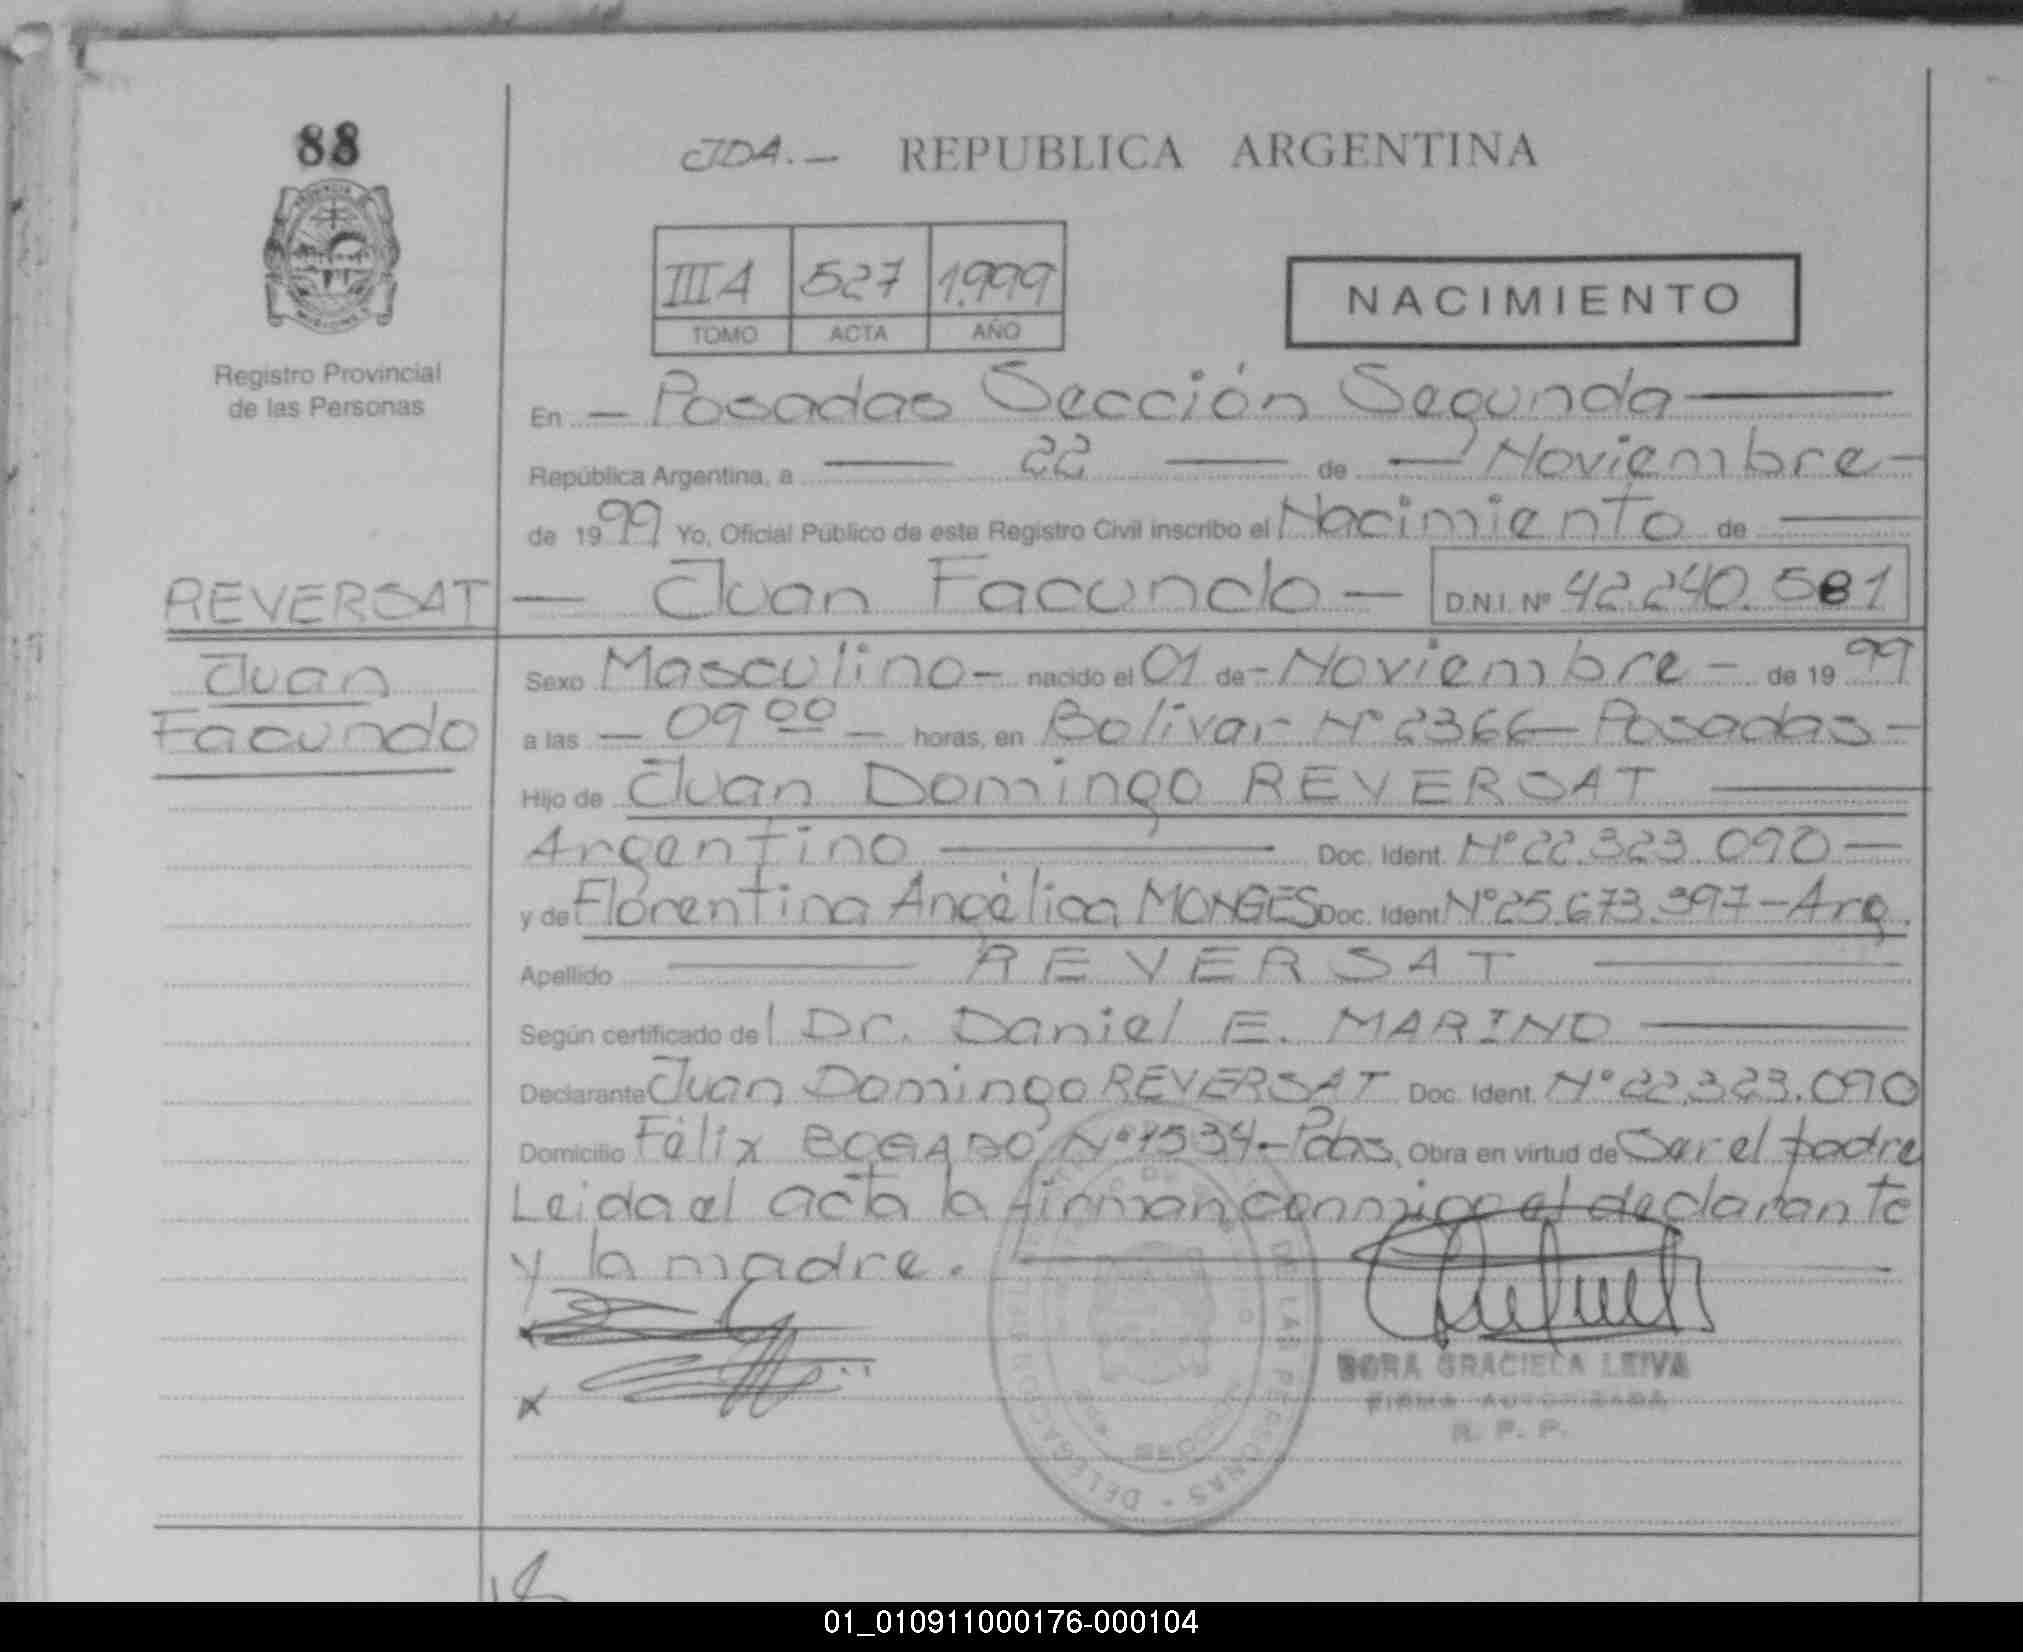 88
JDA.— REPUBLICA ARGENTINA
III A 527 1.999
TOMO ACTA AÑO
NACIMIENTO
Registro Provincial
de las Personas
En — Posadas Sección Segunda —
República Argentina, a — 22 — de — Noviembre —
de 1999 Yo, Oficial Público de este Registro Civil inscribo el Nacimiento de —
REVERSAT — Juan Facundo — D.N.I. Nº 42.240.581
Juan
Facundo
Sexo Masculino — nacido el 01 de — Noviembre — de 1999
a las — 09 00 — horas, en Bolivar Nº 2366 — Posadas —
Hijo de Juan Domingo REVERSAT —
Argentino — Doc. Ident. Nº 22.323.090 —
y de Florentina Angélica MONGES Doc. Ident. Nº 25.673.397 — Arg.
Apellido — REVERSAT —
Según certificado del Dr. Daniel E. MARINO —
Declarante Juan Domingo REVERSAT Doc. Ident. Nº 22.323.090
Domicilio Félix BOGADO Nº 1534 — Pdas. Obra en virtud de Ser el padre
Leida el acta la firman conmigo el declarante
y la madre. —
DE LAS PERSONAS - DELEGACIO
GRACIELA LEIVA
FIRMA AUTORIZADA
R. P. P.
01_010911000176-000104